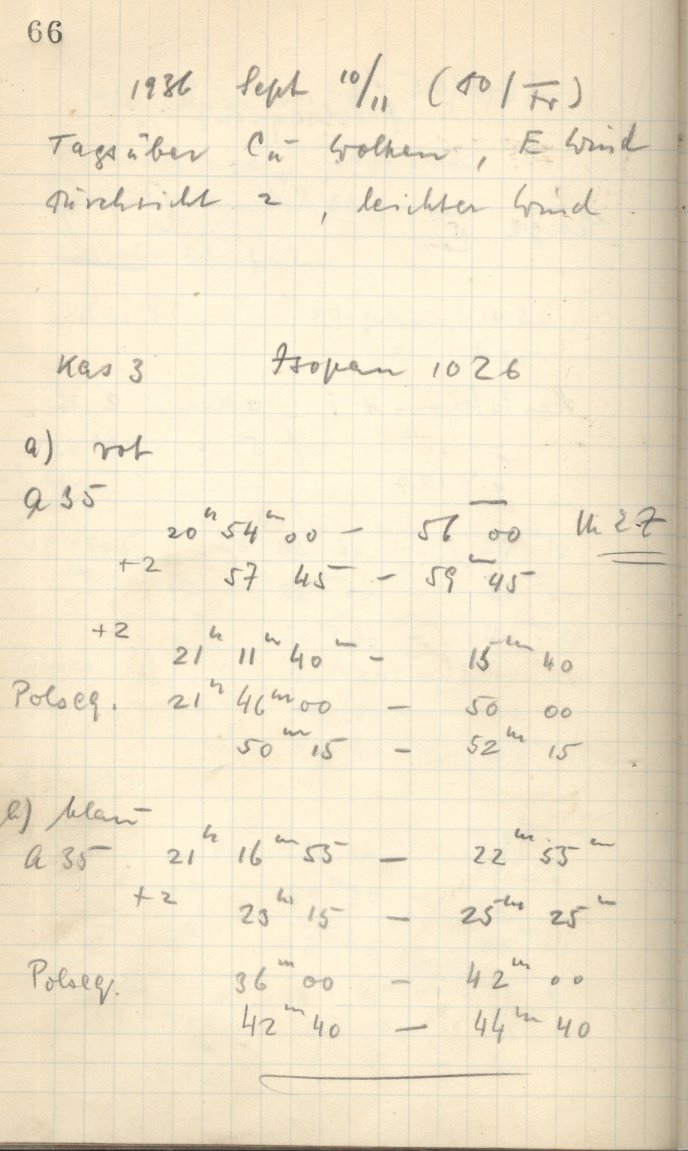 66
1936 Sept 10/11 (Do/Fr)
Tagsüber Cu Wolken, E Wind
Durchsicht 2, leichter Wind
Kas 3 Isopan 1026
a) rot
A 35
20h 54m 00 – 56m 00
+2 57 45 – 59m 45
+2
21h 11m 40 – 15m 40
Polseq. 21h 46m 00 – 50 00
50m 15 – 52m 15
b) blau
A 35 21h 16m 55 – 22m 55
+2 23m 15 – 25m 25
Polseq. 36m 00 – 42m 00
42m 40 – 44m 40